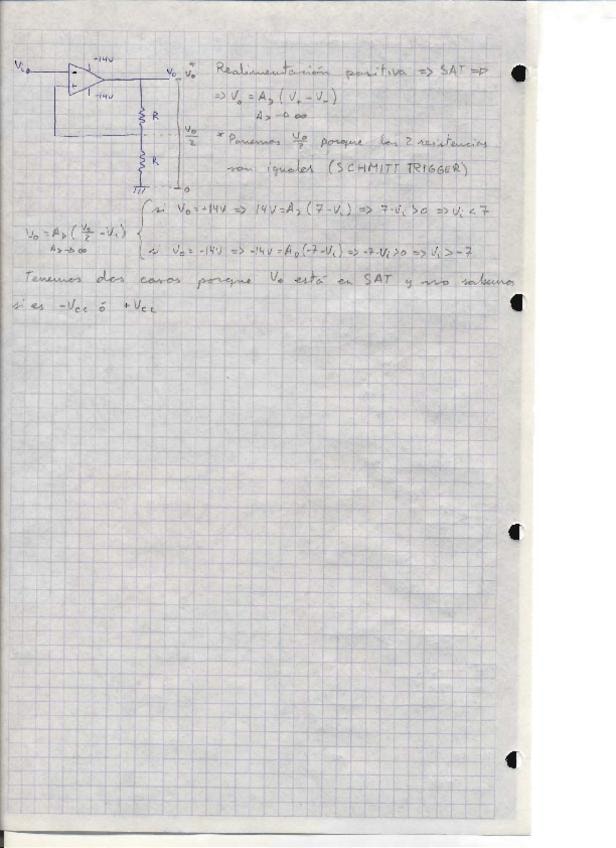 Vi
-14V
-14V
Vo
R
Vo/2
R
0
Realimentación positiva => SAT =>
=> Vo = AD (V+ - V-)
AD -> ∞
* Ponemos Vo/2 porque las 2 resistencias
son iguales (SCHMITT TRIGGER)
Vo = AD (Vo/2 - Vi)
AD -> ∞
si Vo = +14V => 14V = AD (7 - Vi) => 7 - Vi > 0 => Vi < 7
si Vo = -14V => -14V = AD (-7 - Vi) => -7 - Vi > 0 => Vi > -7
Tenemos dos casos porque Vo está en SAT y no sabemos
si es -Vcc ó +Vcc